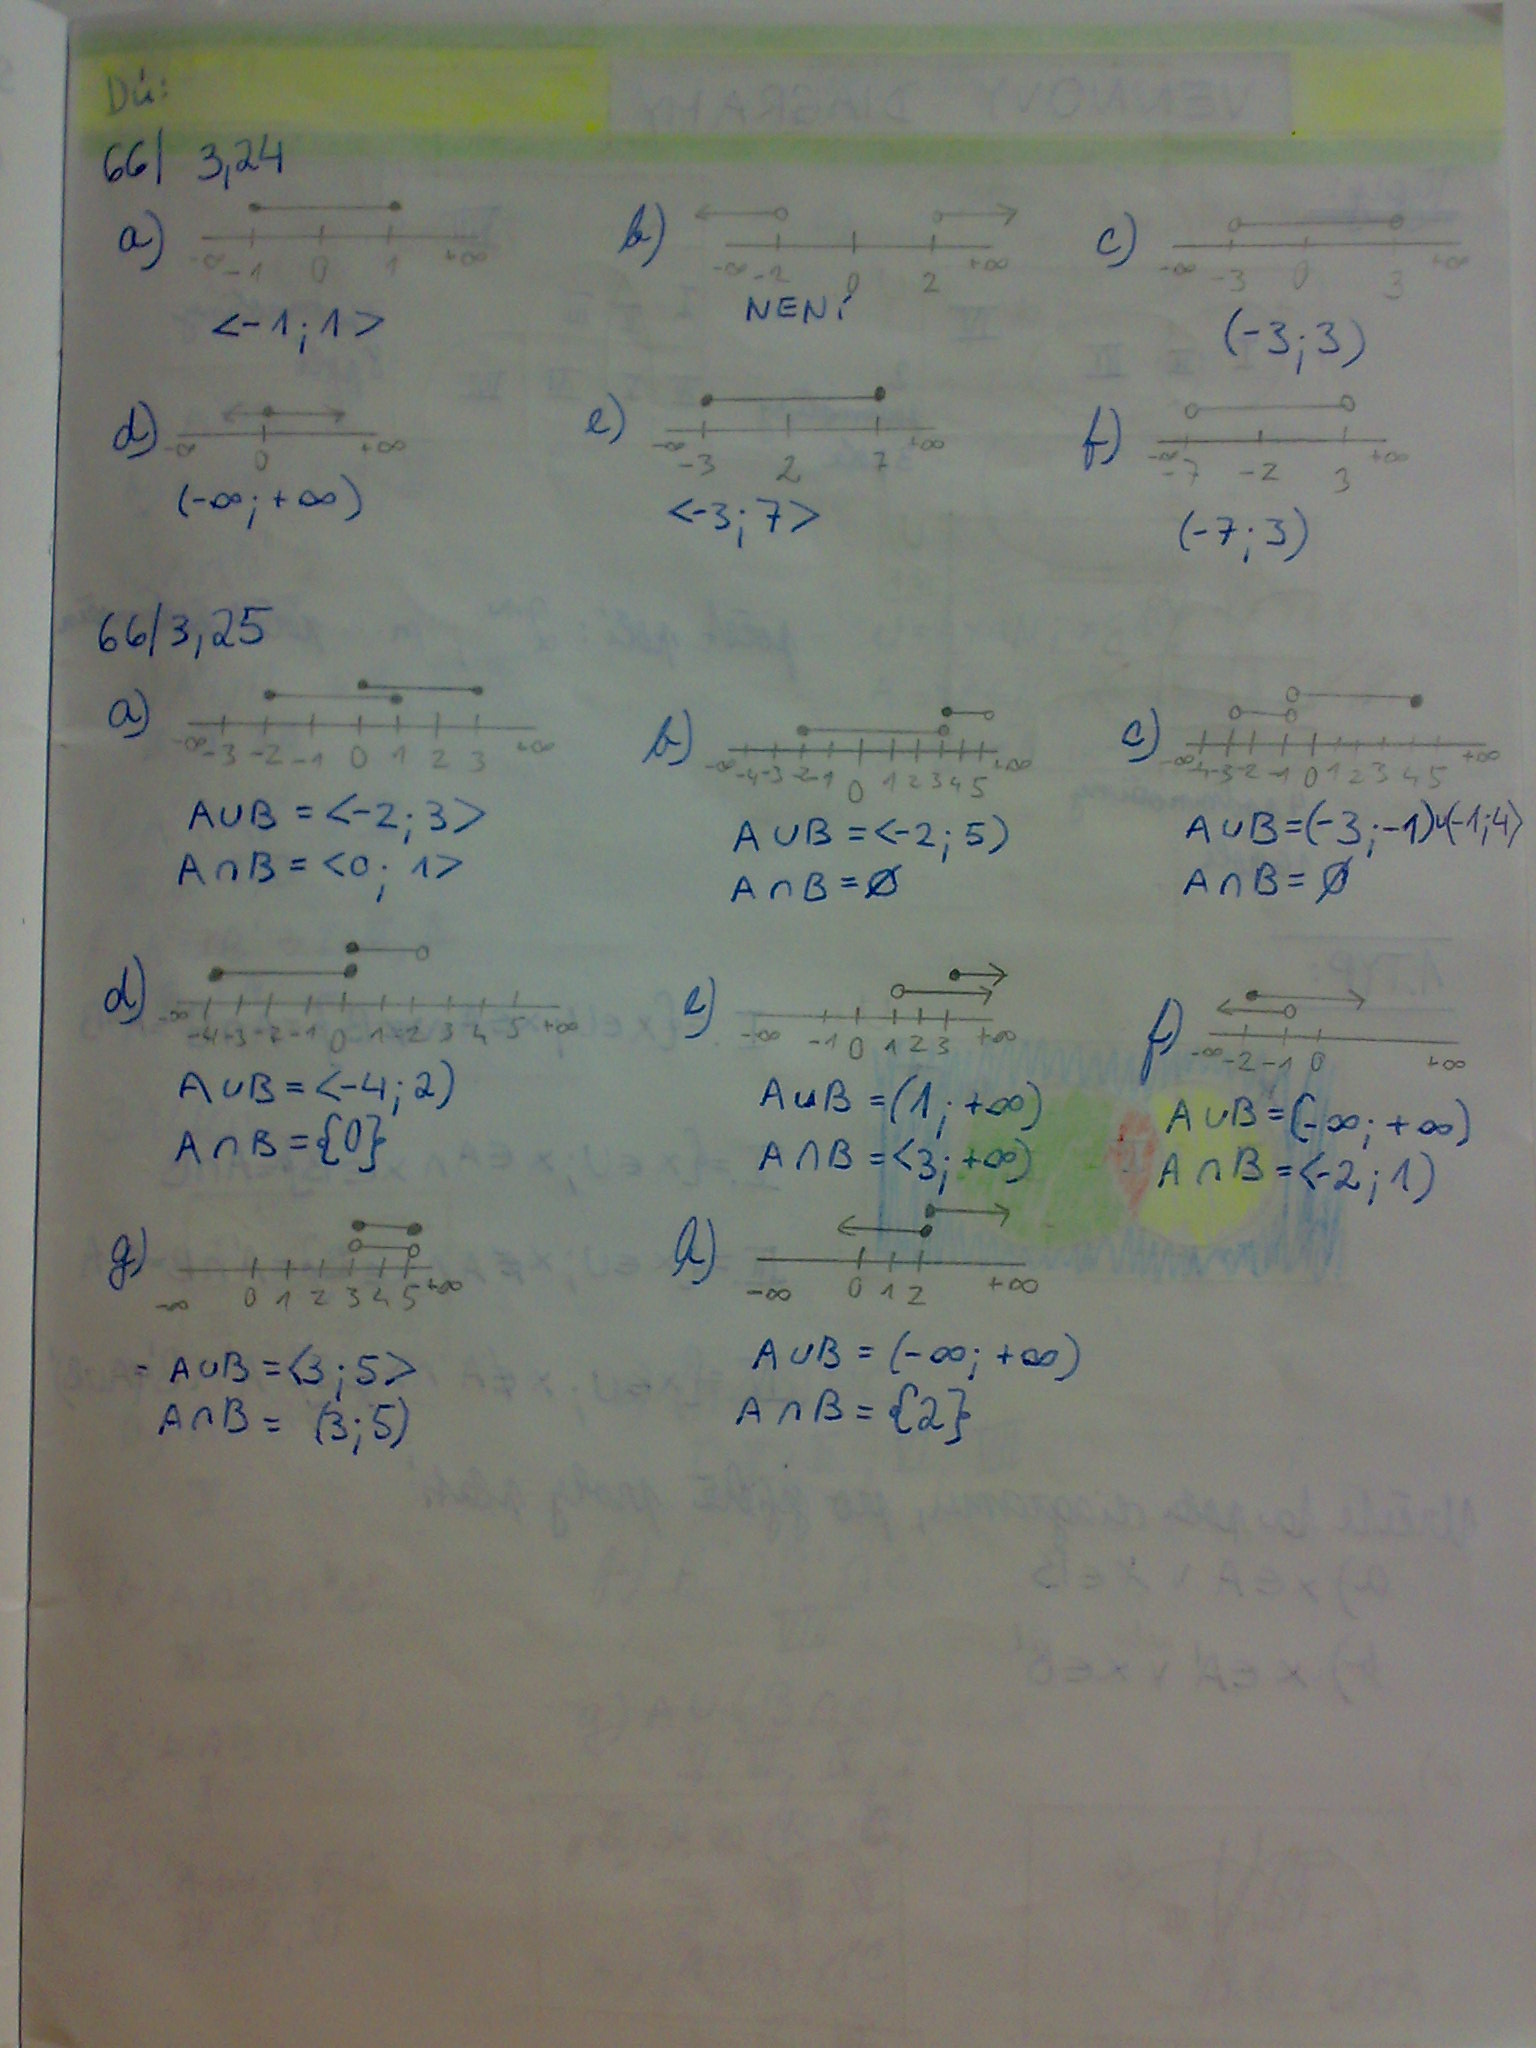 Dú:
66/ 3,24
a) -∞ -1 0 1 +∞
<-1; 1>
b) -∞ -2 0 2 +∞
NENÍ
c) -∞ -3 0 3 +∞
(-3; 3)
d) -∞ 0 +∞
(-∞; +∞)
e) -∞ -3 2 7 +∞
<-3; 7>
f) -∞ -7 -2 3 +∞
(-7; 3)
66/3,25
a) -∞ -3 -2 -1 0 1 2 3 +∞
A∪B = <-2; 3>
A∩B = <0; 1>
b) -∞ -4 -3 -2 -1 0 1 2 3 4 5 +∞
A∪B = <-2; 5)
A∩B = Ø
c) -∞ -4 -3 -2 -1 0 1 2 3 4 5 +∞
A∪B = (-3; -1)∪(-1; 4>
A∩B = Ø
d) -∞ -4 -3 -2 -1 0 1 2 3 4 5 +∞
A∪B = <-4; 2)
A∩B = {0}
e) -∞ -1 0 1 2 3 +∞
A∪B = (1; +∞)
A∩B = <3; +∞)
f) -∞ -2 -1 0 +∞
A∪B = (-∞; +∞)
A∩B = <-2; 1)
g) -∞ 0 1 2 3 4 5 +∞
A∪B = <3; 5>
A∩B = (3; 5)
h) -∞ 0 1 2 +∞
A∪B = (-∞; +∞)
A∩B = {2}